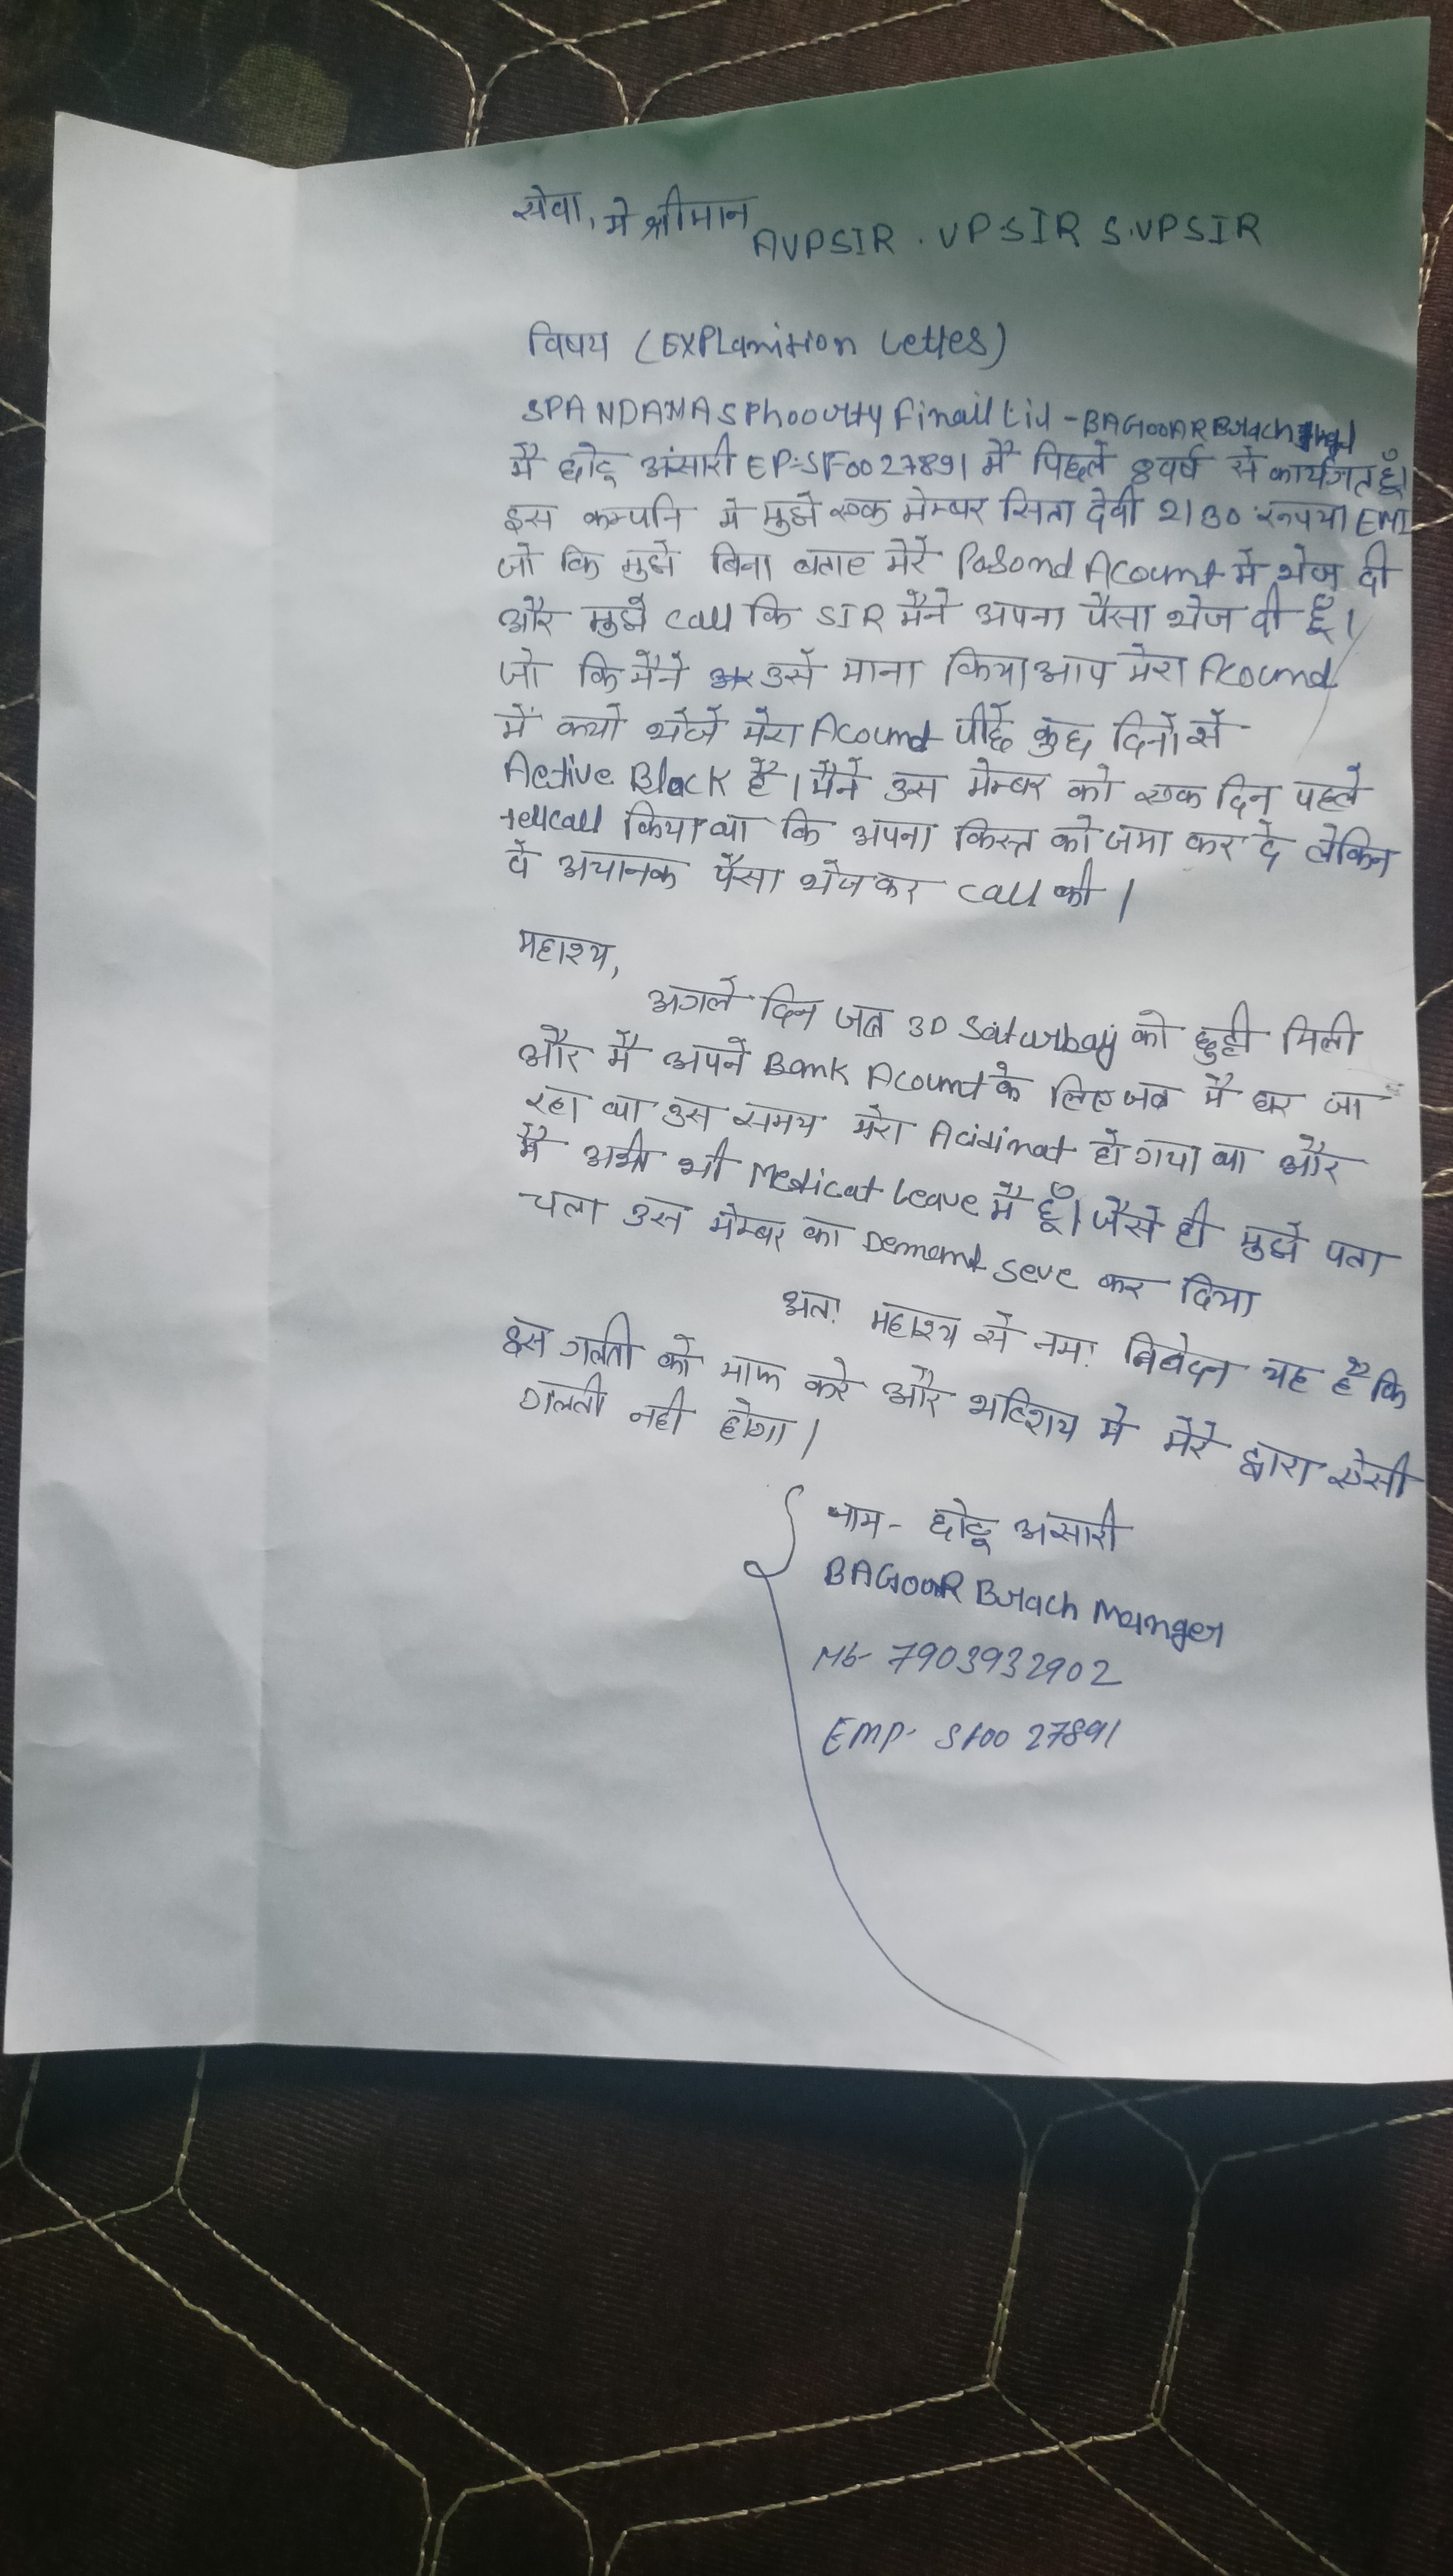 सेवा, मे श्रीमान AVPSIR . VPSIR S.VPSIR
विषय (EXPlamition Lettes)
SPANDAMA SPhoovtty Finail Lid - BAGooAR Brach
मै छोटू अंसारी EP:-SF0027891 मै पिछले 8 वर्ष से कार्यगत हूँ।
इस कम्पनि मे मुझे एक मेम्बर सिता देवी 2130 रूपया EMI
जो कि मुझे बिना बताए मेरे Posond Acount मे भेज दी
और मुझे Call कि SIR मैने अपना पैसा भेज दी हूँ।
जो कि मैने उसे माना किया आप मेरा Acound
में क्यो भेजे मेरा Acound पीछे कुछ दिनो से
Active Block है। मैने उस मेम्बर को एक दिन पहले
tellcall किया था कि अपना किस्त को जमा कर दे लेकिन
वे अचानक पैसा भेजकर Call की।
महाश्य,
अगले दिन जब 3D Saturbay को छुट्टी मिली
और मै अपने Bank Acount के लिए जब मै घर जा
रहा था उस समय मेरा Acidinat हो गया था और
मै अभी भी Medicat Leave मै हूँ। जैसे ही मुझे पता
चला उस मेम्बर का Demamd Seve कर दिया
अतः महाश्य से नमः निवेदन यह है कि
इस गलती को माफ करे और भविशय मे मेरे द्वारा ऐसी
गलती नही होगा।
नाम - छोटू अंसारी
BAGooR Brach Mainger
Mb- 7903932902
EMP- Sf00 27891